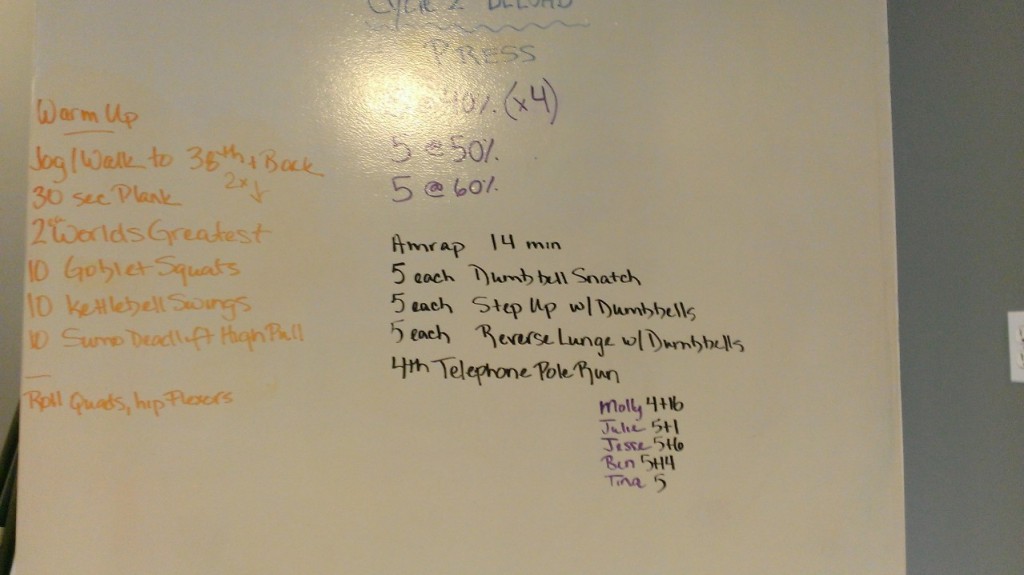 Cycle 2 DELOAD
PRESS
5 @ 40% (x4)
5 @ 50%
5 @ 60%
Warm Up
Jog/Walk to 36th + Back
2x ↓
30 sec Plank
2 Worlds Greatest
10 Goblet Squats
10 Kettlebell Swings
10 Sumo Deadlift High Pull
Roll Quads, hip Flexors
Amrap 14 min
5 each Dumbbell Snatch
5 each Step Up w/ Dumbbells
5 each Reverse Lunge w/ Dumbbells
4th Telephone Pole Run
Molly 4+16
Julie 5+1
Jesse 5+6
Ben 5+14
Tina 5